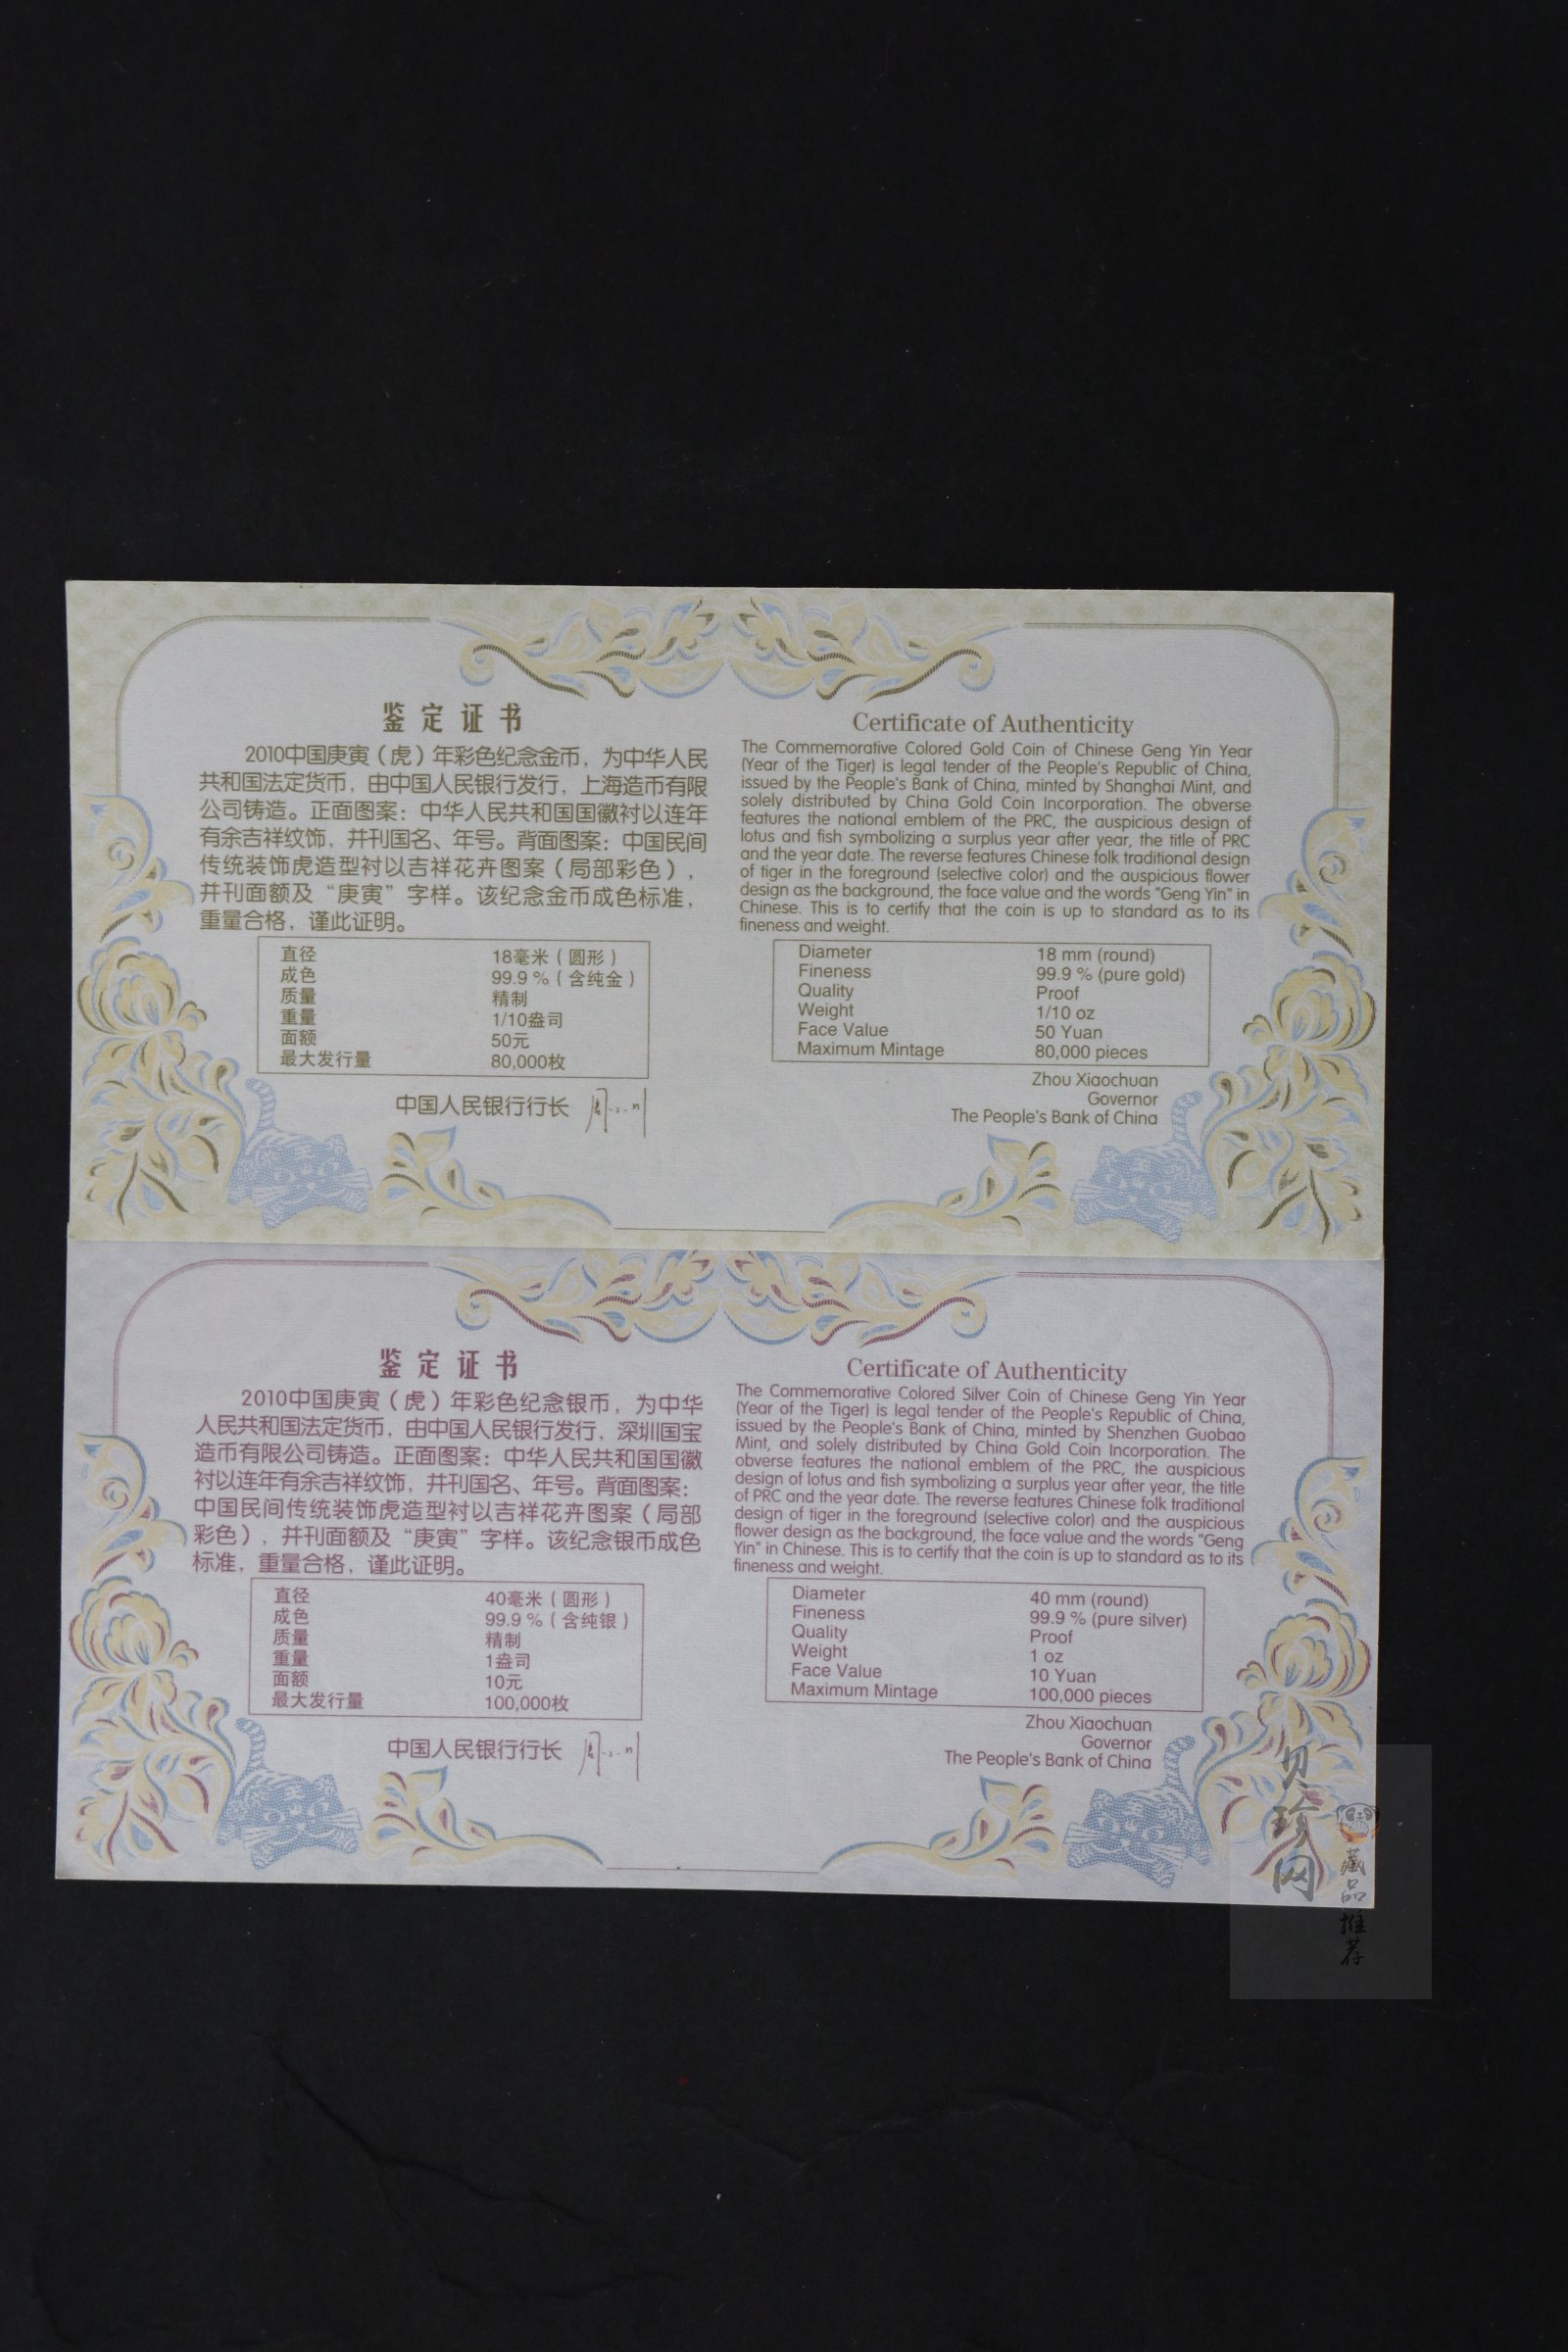 鉴定证书
2010中国庚寅（虎）年彩色纪念金币，为中华人民
共和国法定货币，由中国人民银行发行，上海造币有限
公司铸造。正面图案：中华人民共和国国徽衬以连年
有余吉祥纹饰，并刊国名、年号。背面图案：中国民间
传统装饰虎造型衬以吉祥花卉图案（局部彩色），
并刊面额及“庚寅”字样。该纪念金币成色标准，
重量合格，谨此证明。
直径 18毫米（圆形）
成色 99.9 %（含纯金）
质量 精制
重量 1/10盎司
面额 50元
最大发行量 80,000枚
中国人民银行行长 周小川
Certificate of Authenticity
The Commemorative Colored Gold Coin of Chinese Geng Yin Year
(Year of the Tiger) is legal tender of the People's Republic of China,
issued by the People's Bank of China, minted by Shanghai Mint, and
solely distributed by China Gold Coin Incorporation. The obverse
features the national emblem of the PRC, the auspicious design of
lotus and fish symbolizing a surplus year after year, the title of PRC
and the year date. The reverse features Chinese folk traditional design
of tiger in the foreground (selective color) and the auspicious flower
design as the background, the face value and the words "Geng Yin" in
Chinese. This is to certify that the coin is up to standard as to its
fineness and weight.
Diameter 18 mm (round)
Fineness 99.9 % (pure gold)
Quality Proof
Weight 1/10 oz
Face Value 50 Yuan
Maximum Mintage 80,000 pieces
Zhou Xiaochuan
Governor
The People's Bank of China
鉴定证书
2010中国庚寅（虎）年彩色纪念银币，为中华
人民共和国法定货币，由中国人民银行发行，深圳国宝
造币有限公司铸造。正面图案：中华人民共和国国徽
衬以连年有余吉祥纹饰，并刊国名、年号。背面图案：
中国民间传统装饰虎造型衬以吉祥花卉图案（局部
彩色），并刊面额及“庚寅”字样。该纪念银币成色
标准，重量合格，谨此证明。
直径 40毫米（圆形）
成色 99.9 %（含纯银）
质量 精制
重量 1盎司
面额 10元
最大发行量 100,000枚
中国人民银行行长 周小川
Certificate of Authenticity
The Commemorative Colored Silver Coin of Chinese Geng Yin Year
(Year of the Tiger) is legal tender of the People's Republic of China,
issued by the People's Bank of China, minted by Shenzhen Guobao
Mint, and solely distributed by China Gold Coin Incorporation. The
obverse features the national emblem of the PRC, the auspicious
design of lotus and fish symbolizing a surplus year after year, the title
of PRC and the year date. The reverse features Chinese folk traditional
design of tiger in the foreground (selective color) and the auspicious
flower design as the background, the face value and the words "Geng
Yin" in Chinese. This is to certify that the coin is up to standard as to its
fineness and weight.
Diameter 40 mm (round)
Fineness 99.9 % (pure silver)
Quality Proof
Weight 1 oz
Face Value 10 Yuan
Maximum Mintage 100,000 pieces
Zhou Xiaochuan
Governor
The People's Bank of China
贝珍网
藏品推荐